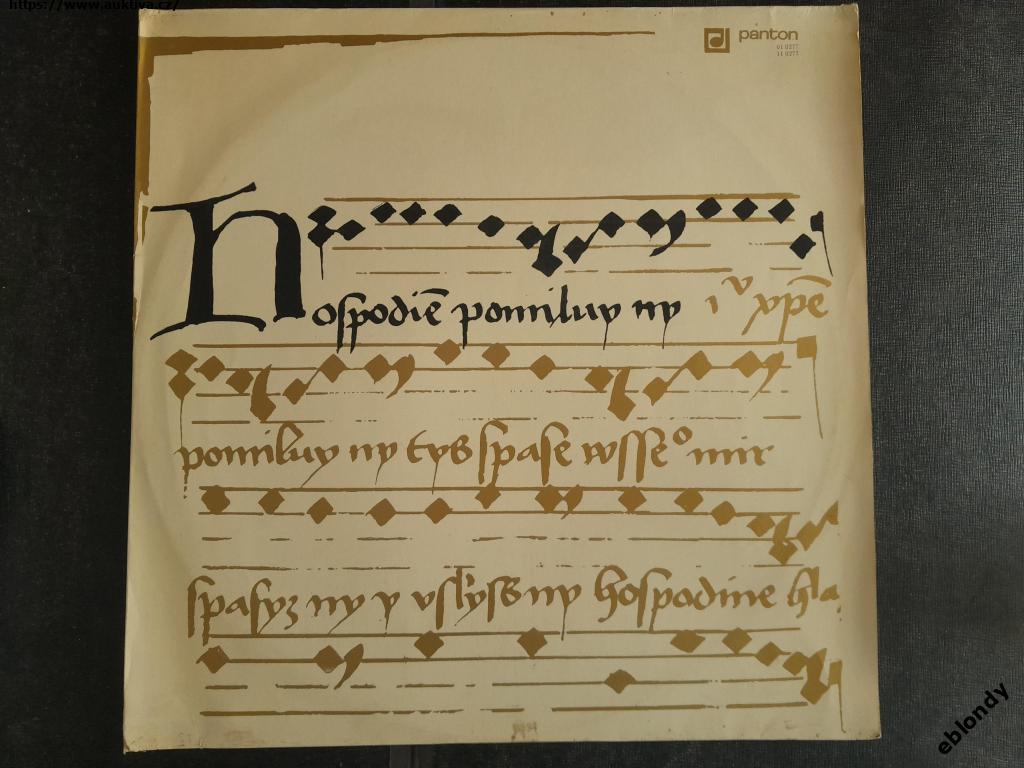 https://www.aukliva.cz/
panton
01 0277
11 0277
Hospodiē pomiluy ny i v xpē
pomiluy ny tys spase wsse o mir
spasyz ny y uslyss ny hospodine hla
eblondy